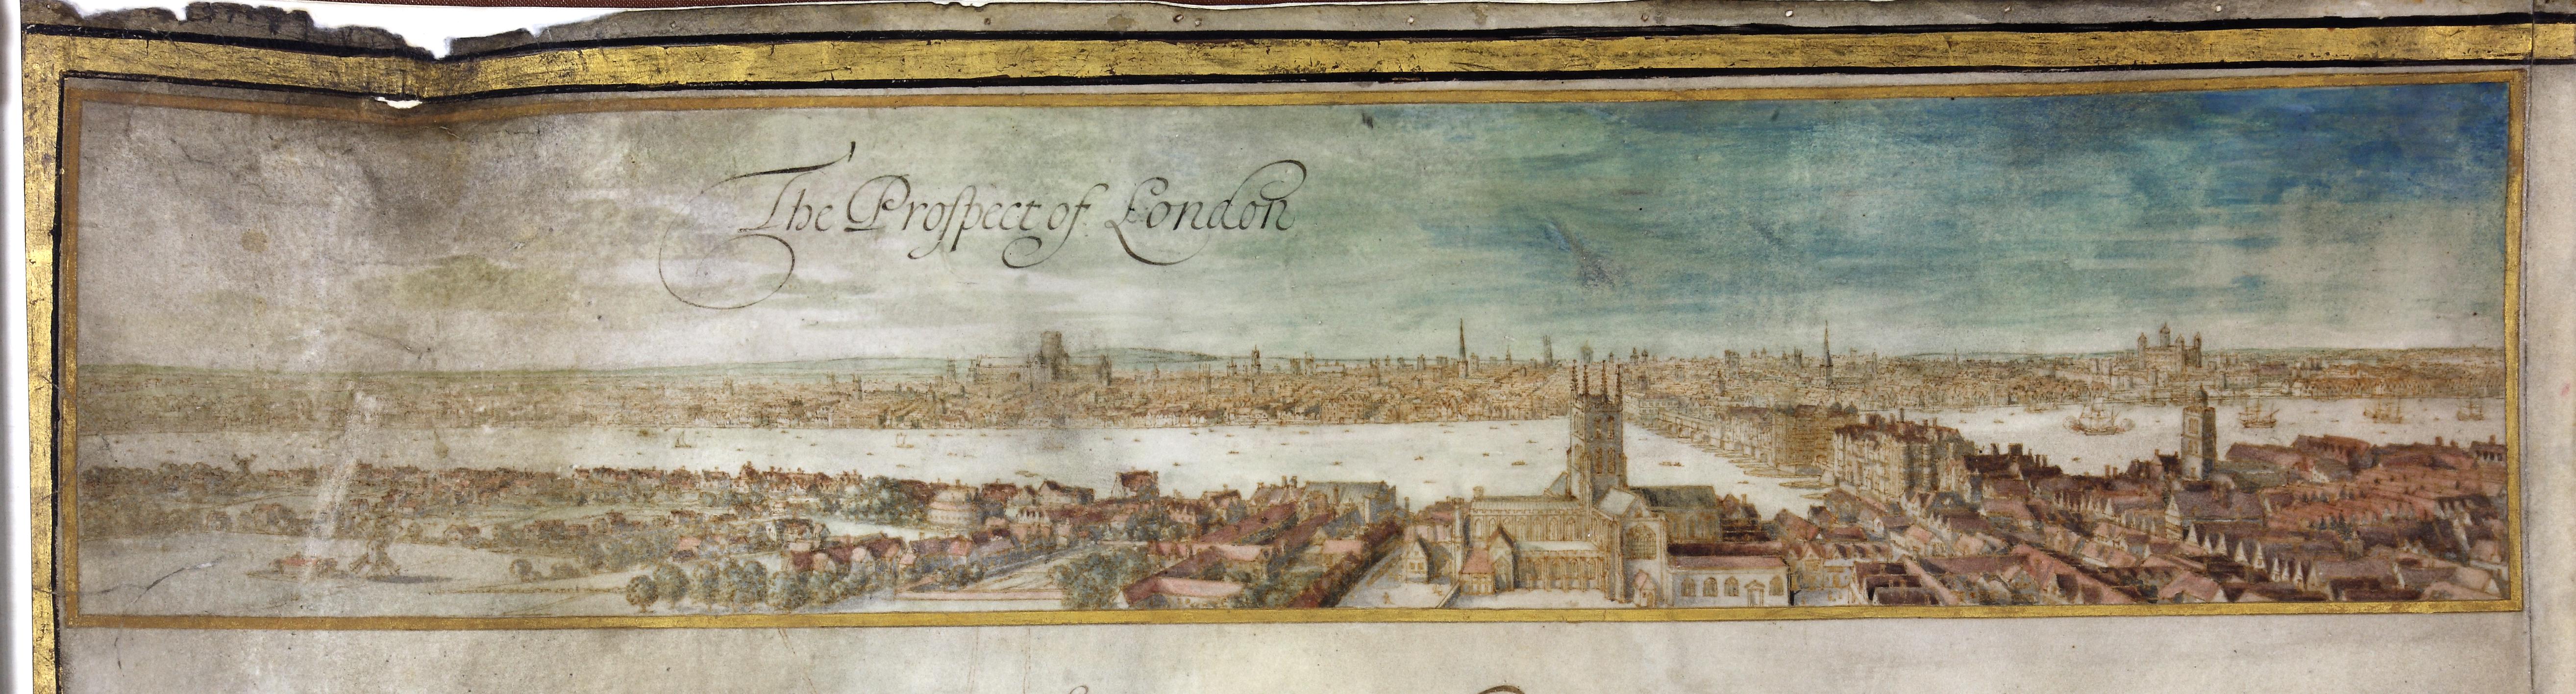 The Proſpect of London